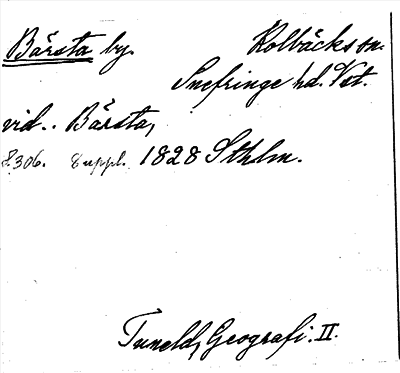 Bärsta by. Kolbäcks sn.
Snefringe hd. Vst.
vid.. Bärsta,
s. 306. suppl. 1828 Sthlm.
Tuneld, Geografi. II.